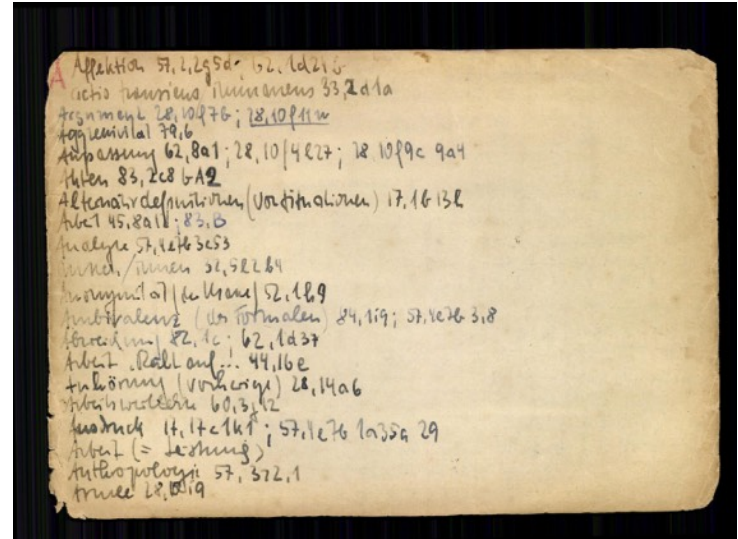 A Affektion 57,2,2g5d; 62,1d21b
actio transiens immanens 33,2d1a
Argument 28,10f7b; 28,10f11w
Aggressivität 79,6
Anpassung 62,8a1; 28,10f4e27; 28 10f9c 9a4
Akten 83,2c8bA2
Alternativdefinitionen (von Situationen) 17,1b13e
Arbeit 45,8a1; 83,B
Analyse 57,4e7b3c53
/innen 32,5e2b4
Anonymität 52,1b9
Ambivalenz (des Formalen) 84,1i9; 57,4e7b 3,8
Abweichung 82,1c; 62,1d37
Arbeit ... 44,16e
Anhörung (vorherige) 28,14a6
60,3
Ausdruck 17,17c1k1; 57,4e7b 1a35a 29
Arbeit (= Leistung)
Anthropologie 57,3z2,1
Armee